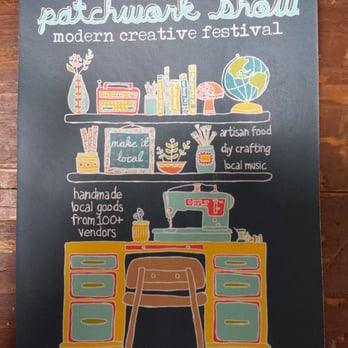 patchwork show
modern creative festival
make it
local
artisan food
diy crafting
local music
handmade
local goods
from 100+
vendors